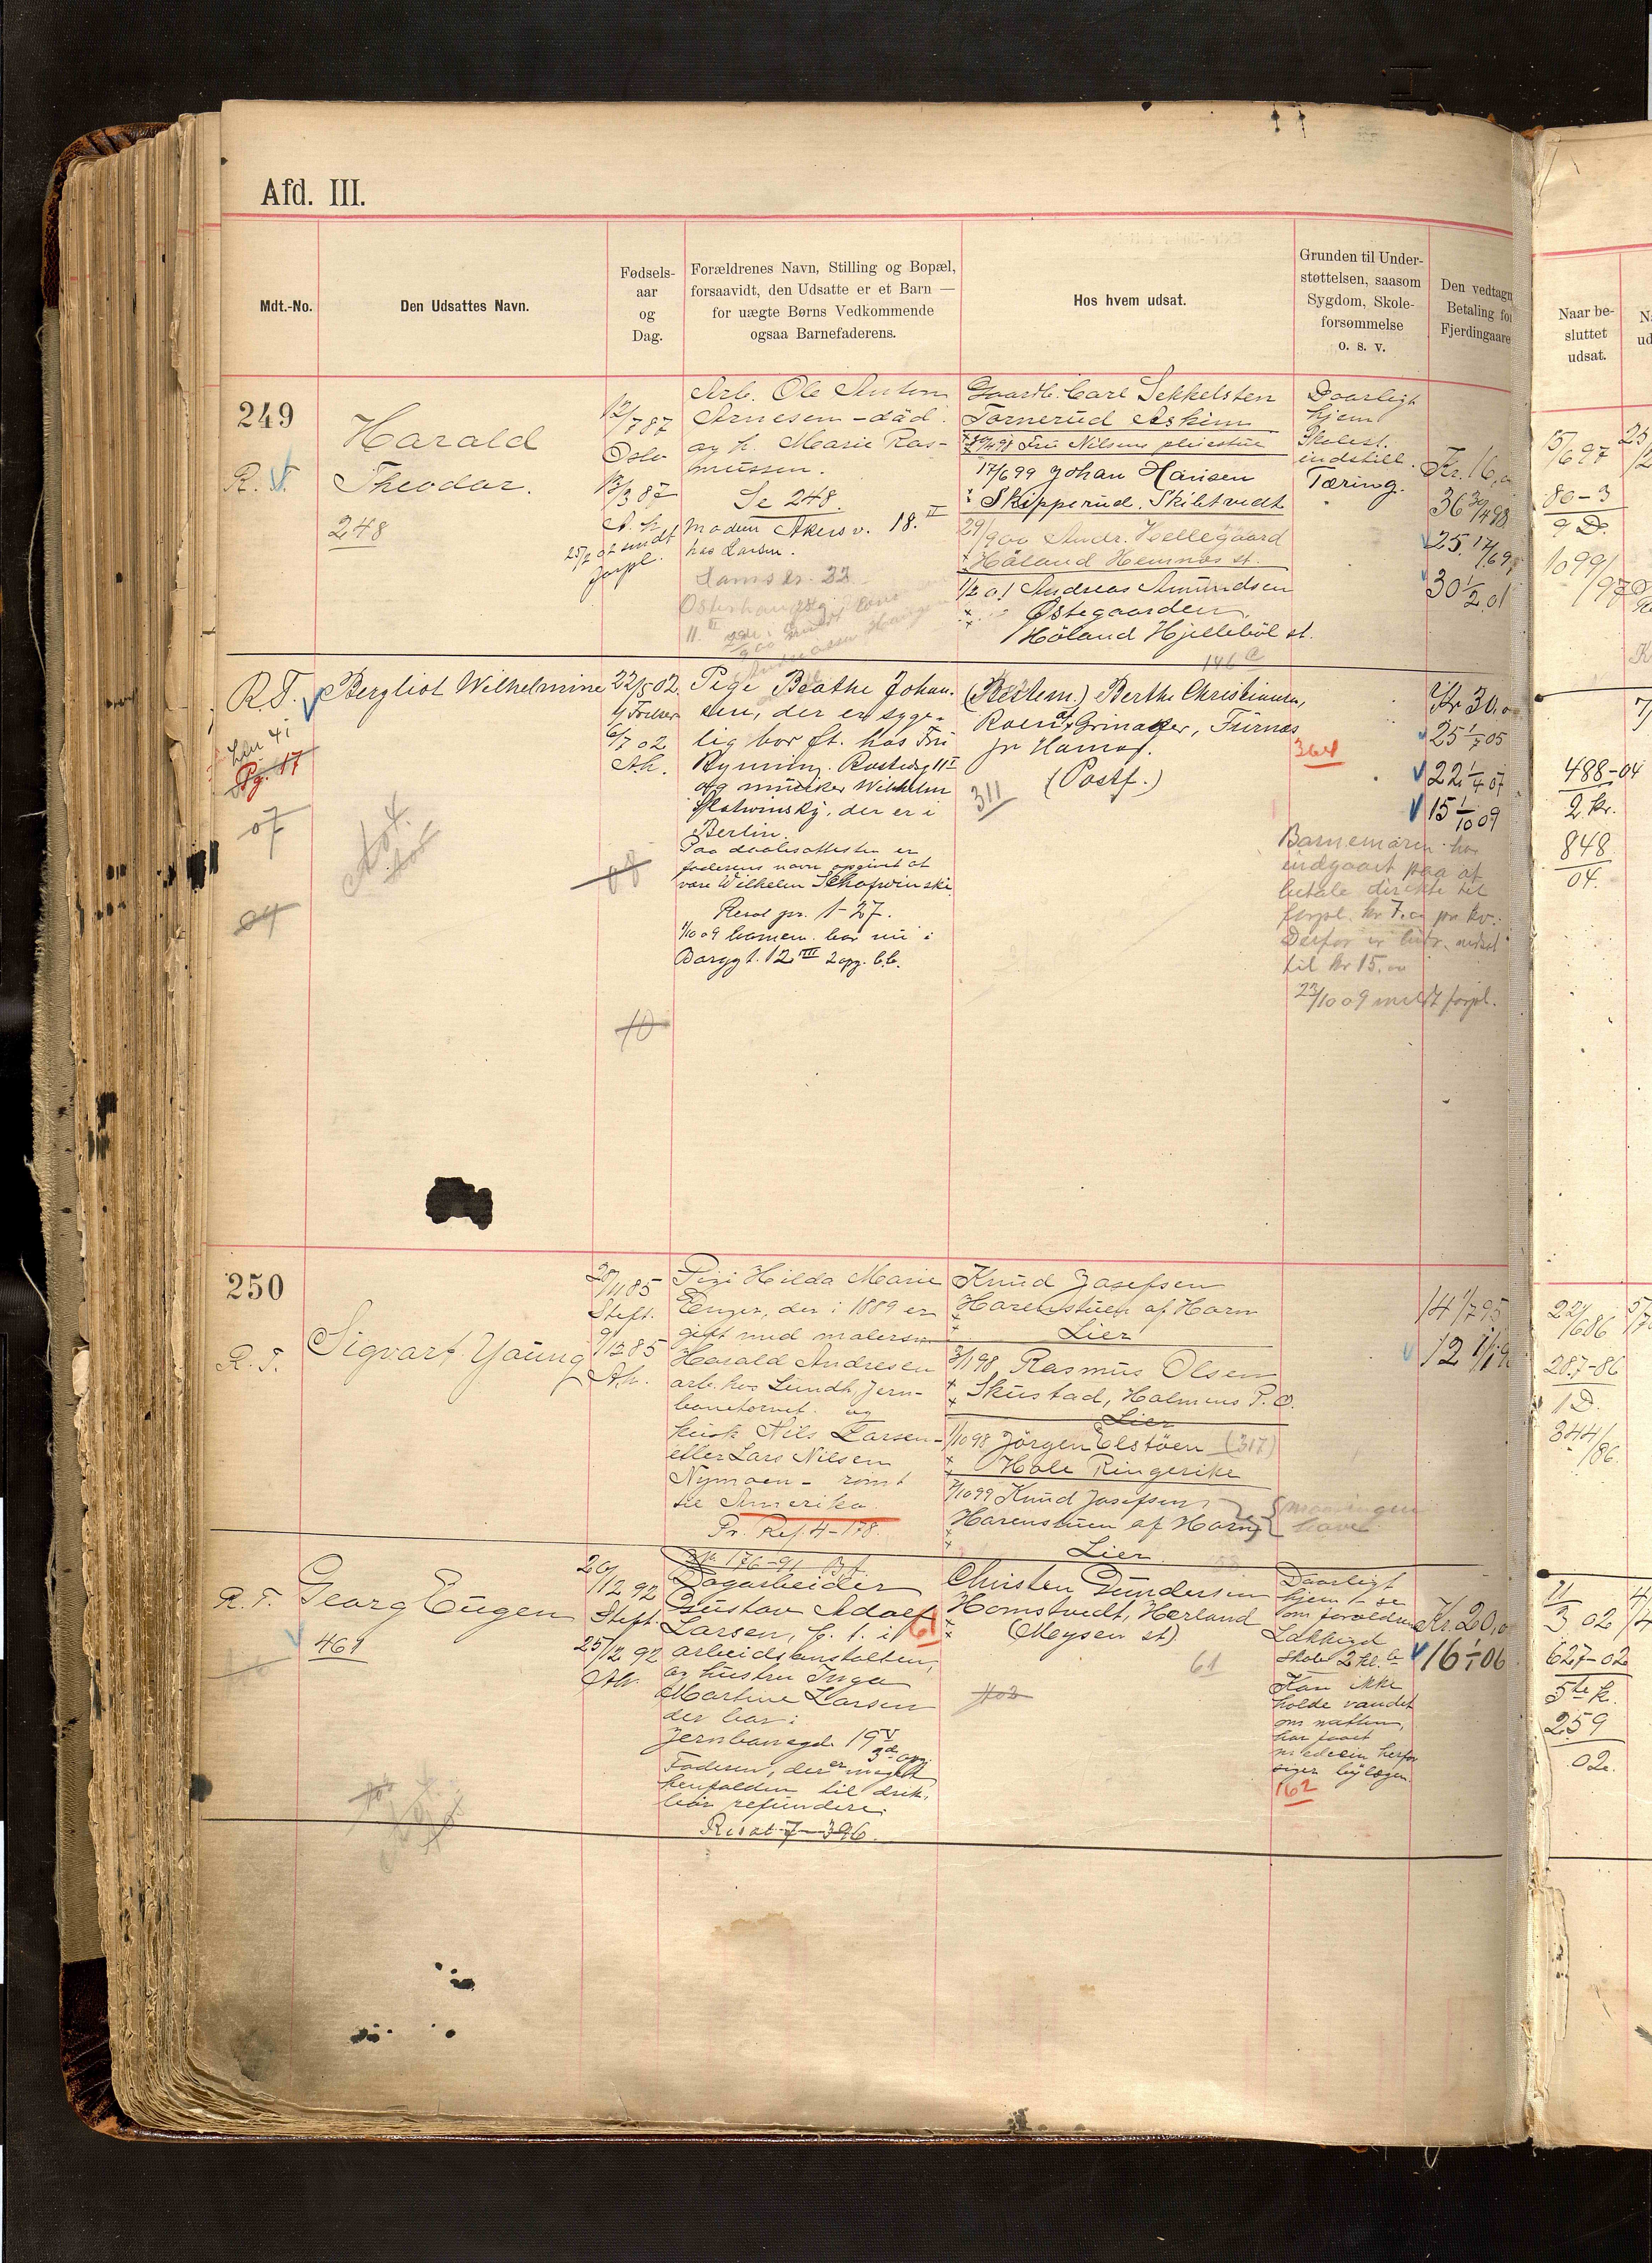 Afd. III.
Mdt.-No.
Den Udsattes Navn.
Fødsels-
aar
og
Dag.
Forældrenes Navn, Stilling og Bopæl,
forsaavidt, den Udsatte er et Barn —
for uægte Børns Vedkommende
ogsaa Barnefaderens.
Hos hvem udsat.
Grunden til Under-
støttelsen, saasom
Sygdom, Skole-
forsømmelse
o. s. v.
Den vedtagn
Betaling for
Fjerdingaare
Naar be-
sluttet
udsat.
249
R. T.
Harald
Theodor.
248
12/7 87
Oslo
13/3 87
25/2 02 sendt
forpl.
Arb. Ole Anton
Arnesen - død.
og h. Marie Ras-
mussen.
Se 248.
Modern Akersv. 18. II
hos Larsen.
Gaardb. Carl Sekkelsten
Tornerud Askim
30/4 98 Fru Nilsens pleiestue
17/6 99 Johan Hansen
Skipperud. Skibtvedt
29/900 Andr. Hellegaard
Høland Hemnæs st.
1/2 01 Andreas Amundsen
Østegaarden
Høland Hjellebøl st.
Daarligt
hjem
Skolest.
indstill.
Tæring.
Kr. 16,
36 30/4 98
25. 17/6 9
30 1/2 01
15/6 97
80-3
9 D.
1099/97
R. T.
Pg. 17
07
04
Bergliot Wilhelmine
22/5 02
Vor Frelser
6/7 02
Ak.
08
10
Pige Beathe Johan-
sen, der er syge-
lig bor ft. hos Fru
Rynning. Rostedsg 11 I
og musiker Wilhelm
der er i
Berlin.
Paa daabsattesten er
faderens navn opgivet at
være Wilhelm Schafwinski
Resol pr. 1-27.
1/10 09 barnem. bor nu i
Borggt. 12 III 2 opg. b.b.
146 a
(Bestem.) Berthe Christiansen,
Roen af Grinaker, Furnæs
pr Hamar.
(Postf.)
311
364
Kr 30,0
25 1/7 05
22 1/4 07
15 1/10 09
Barnemoren har
indgaaet paa at
betale direkte til
forpl. kr 7.00 pr kv.
Derfor er bidr. nedsat
til kr 15.00
23/10 09 meldt forpl.
488-04
2 kr.
848
04.
250
R. T.
Sigvart Young
28/11 85
Stift.
9/12 85
Ak.
Pige Hilda Marie
Enger, der i 1889 er
gift med malersv
Harald Andresen
arb. hos Lundh, Jern-
banetorvet. og
kusk Nils Larsen
eller Lars Nilsen
Nymoen - rømt
til Amerika.
Pr. Ref. 4-178.
Knud Josefsen
Harenstuen af Horn
Lier
3/1 98 Rasmus Olsen
Skustad, Holmens P. O.
Lier
1/10 98 Jørgen Elstøen (317)
Hole Ringerike
7/10 99 Knud Josefsen
Harenstuen af Horn
Lier
14 1/7 95
12 1/1 9
22/6 86
287-86
1 D.
344/86.
R. T.
Georg Eugen
461
20/12 92
Stift.
25/12 92
Ak.
176-91
Dagarbeider
Gustav Adolf
Larsen, f. t. i
arbeidsanstalten,
og hustru Inga
Martine Larsen
der bor i
Jernbanegd. 19 V
3de opg.
Faderen, der er meget
henfalden til drik,
bør refundere.
Resol 7-396.
61
Christen Gundersen
Homstvedt, Herland
(Mysen st)
61
Daarligt
hjem 1-se
om forældre
Lakkegd
skole 2 kl. b
Kan ikke
holde vandet
om natten,
har faaet
medicin herfor
siger bylægen.
162
Kr. 20,0
16 1/1 06
11/3 02
627-02
5te k.
259
02.